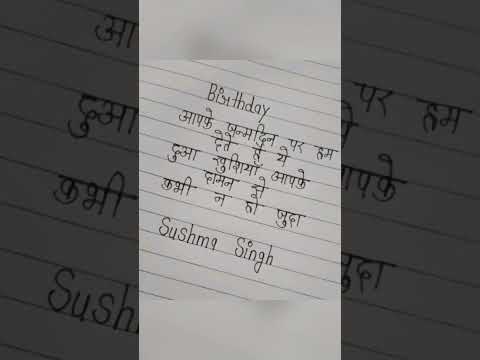 Birthday
आपके जन्मदिन पर हम
देते है ये
दुआ खुशियाँ आपके
दामन से
कभी न हो जुदा
Sushma Singh